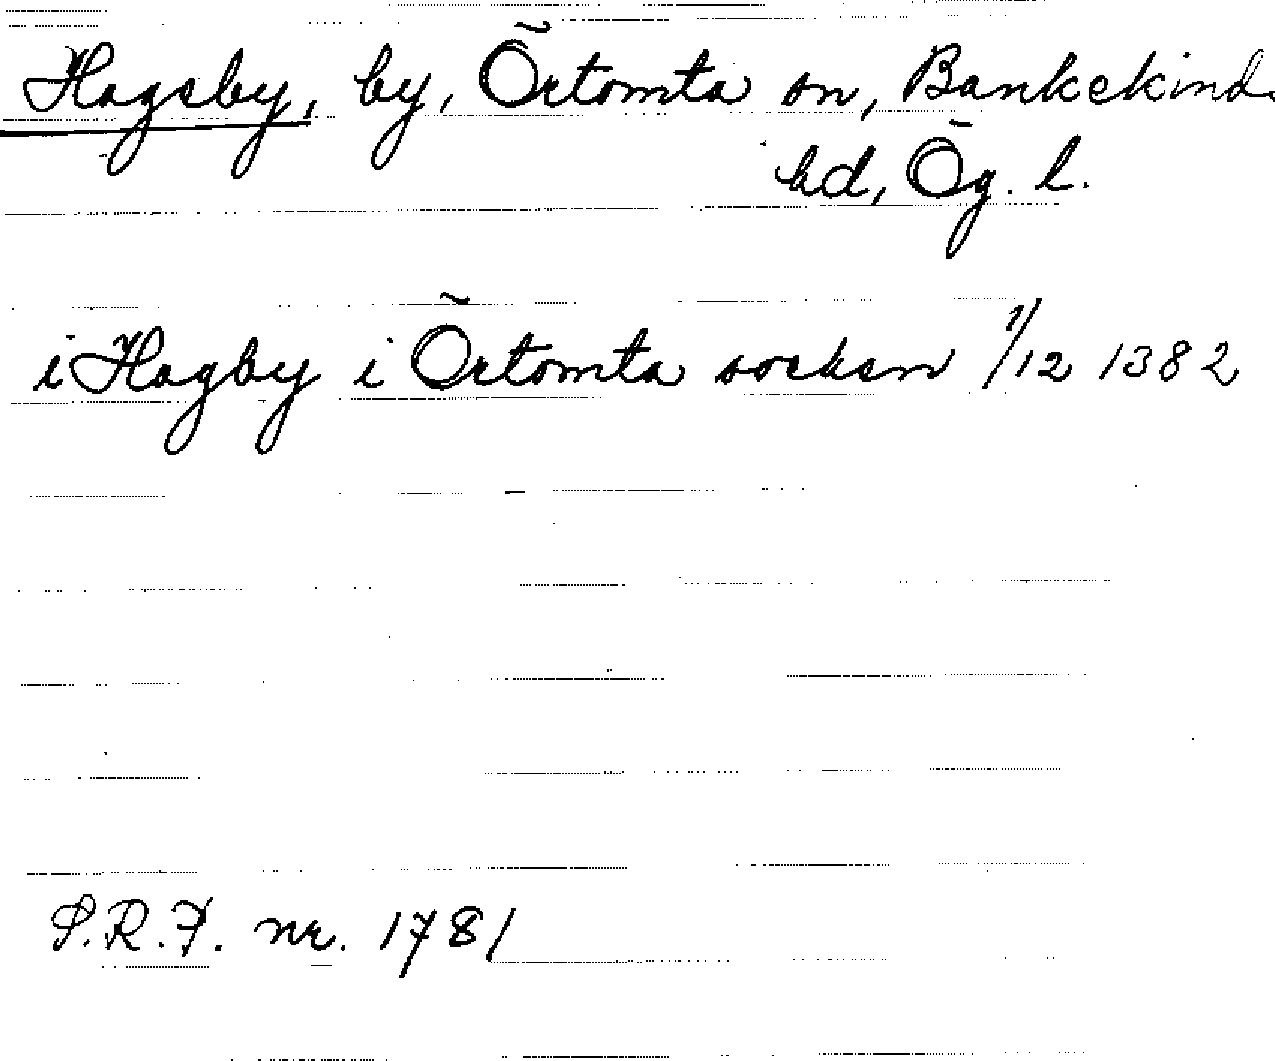 Hagsby, by, Örtomta sn, Bankekinds
hd, Ög. l.
i Hagby i Örtomta socken 1/12 1382
S.R.P. nr. 1781